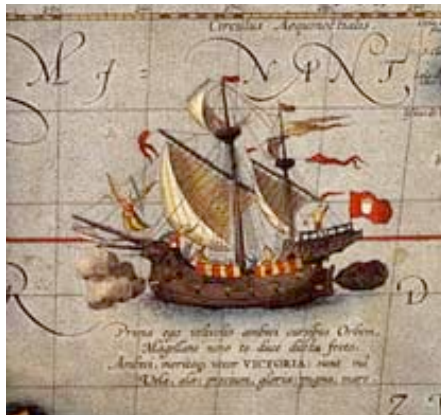 Circulus Aequinoctialis.
M
N
T
R
D
Prima ego velivolis ambivi cursibus Orbem,
Magellane novo te duce ducta freto.
Ambivi, meritoq; vocor VICTORIA: sunt mî
Vela, alæ; precium, gloria; pugna, mare.